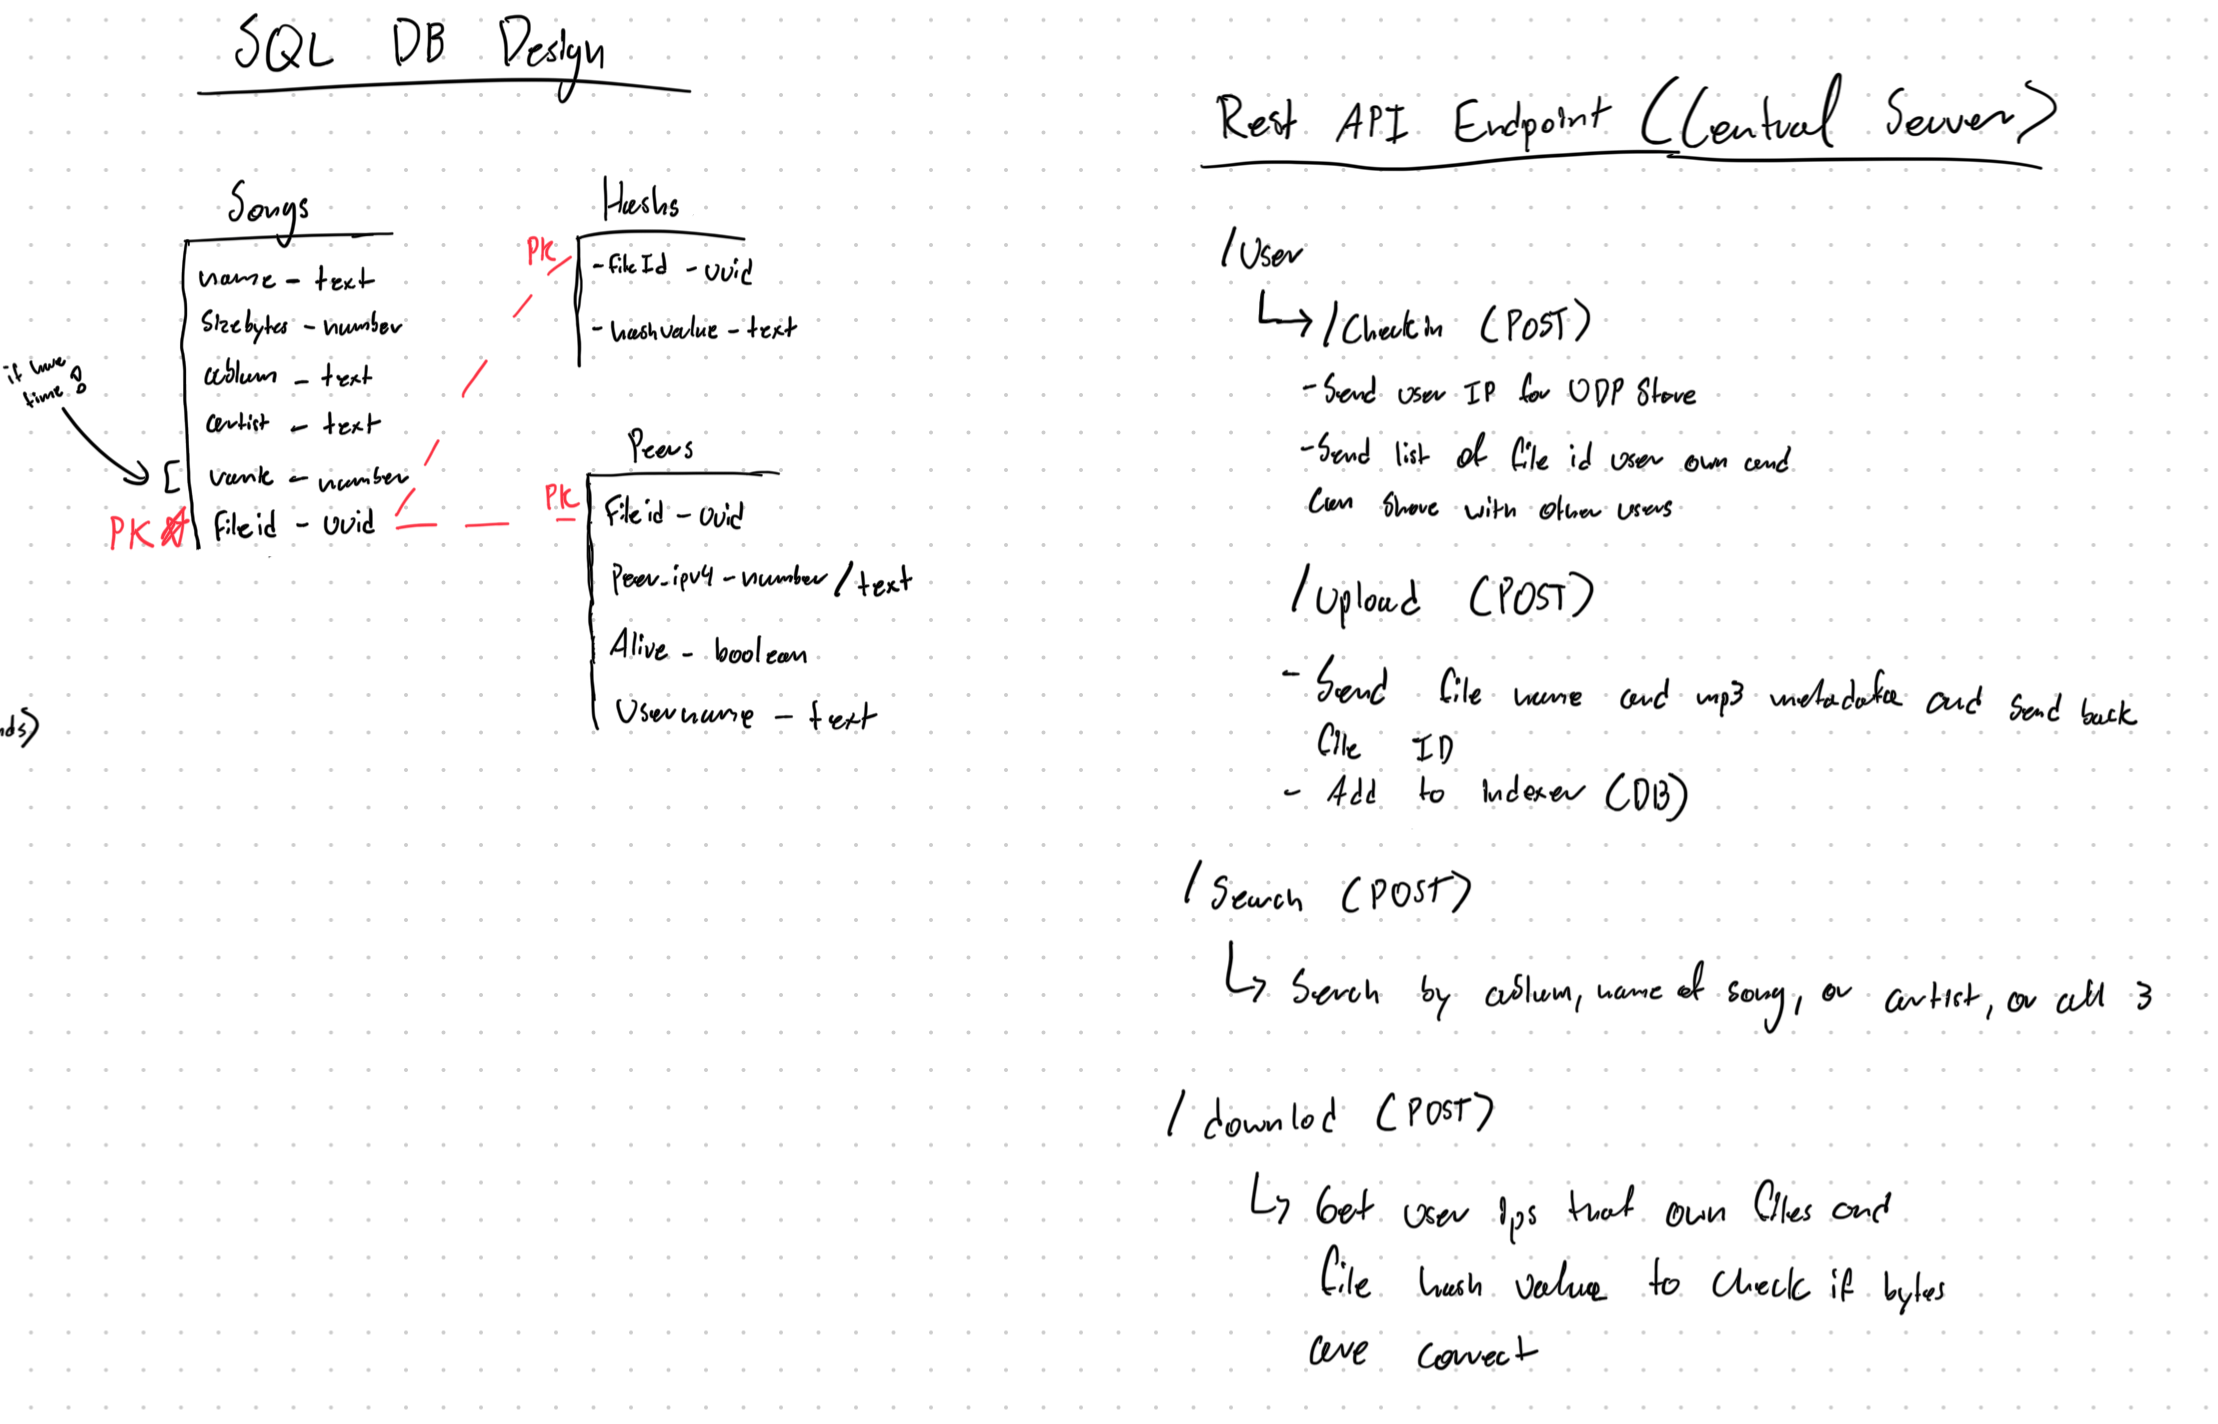 SQL DB Design
Songs
name - text
Sizebytes - number
album - text
artist - text
if have
time :
[ rank - number
PK fileid - uuid
Hashs
PK
- fileId - uuid
- hashvalue - text
Peers
PK
Fileid - uuid
Peer_ipv4 - number / text
Alive - boolean
Username - text
nds)
Rest API Endpoint (Central Server)
/User
/Checkin (POST)
- Send user IP for UDP Store
- Send list of file id user own and
Can share with other users
/Upload (POST)
- Send file name and mp3 metadata and send back
file ID
- Add to indexer (DB)
/Search (POST)
Serch by album, name of song, or artist, or all 3
/downlod (POST)
Get user ips that own files and
file hash value to check if bytes
are correct